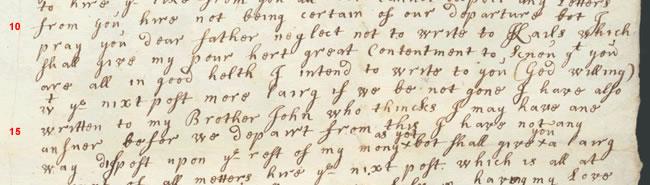 to hear
10 from you here not being certain of our departure bot I
pray you dear father neglect not to write to Kails which
shall give my pour hert great Contentment to know yt you
are all in good helth I intend to write to you (God willing)
wt ye nixt post more lairg if we be not gone I have also
15 written to my Brother John who thincks I may have ane
ansuer befor we depairt from this I have not any
as yet you
way dispost upon ye rest of my mony x bot shall give x a lairg
of all metters here ye nixt post. which is all at
having my Love